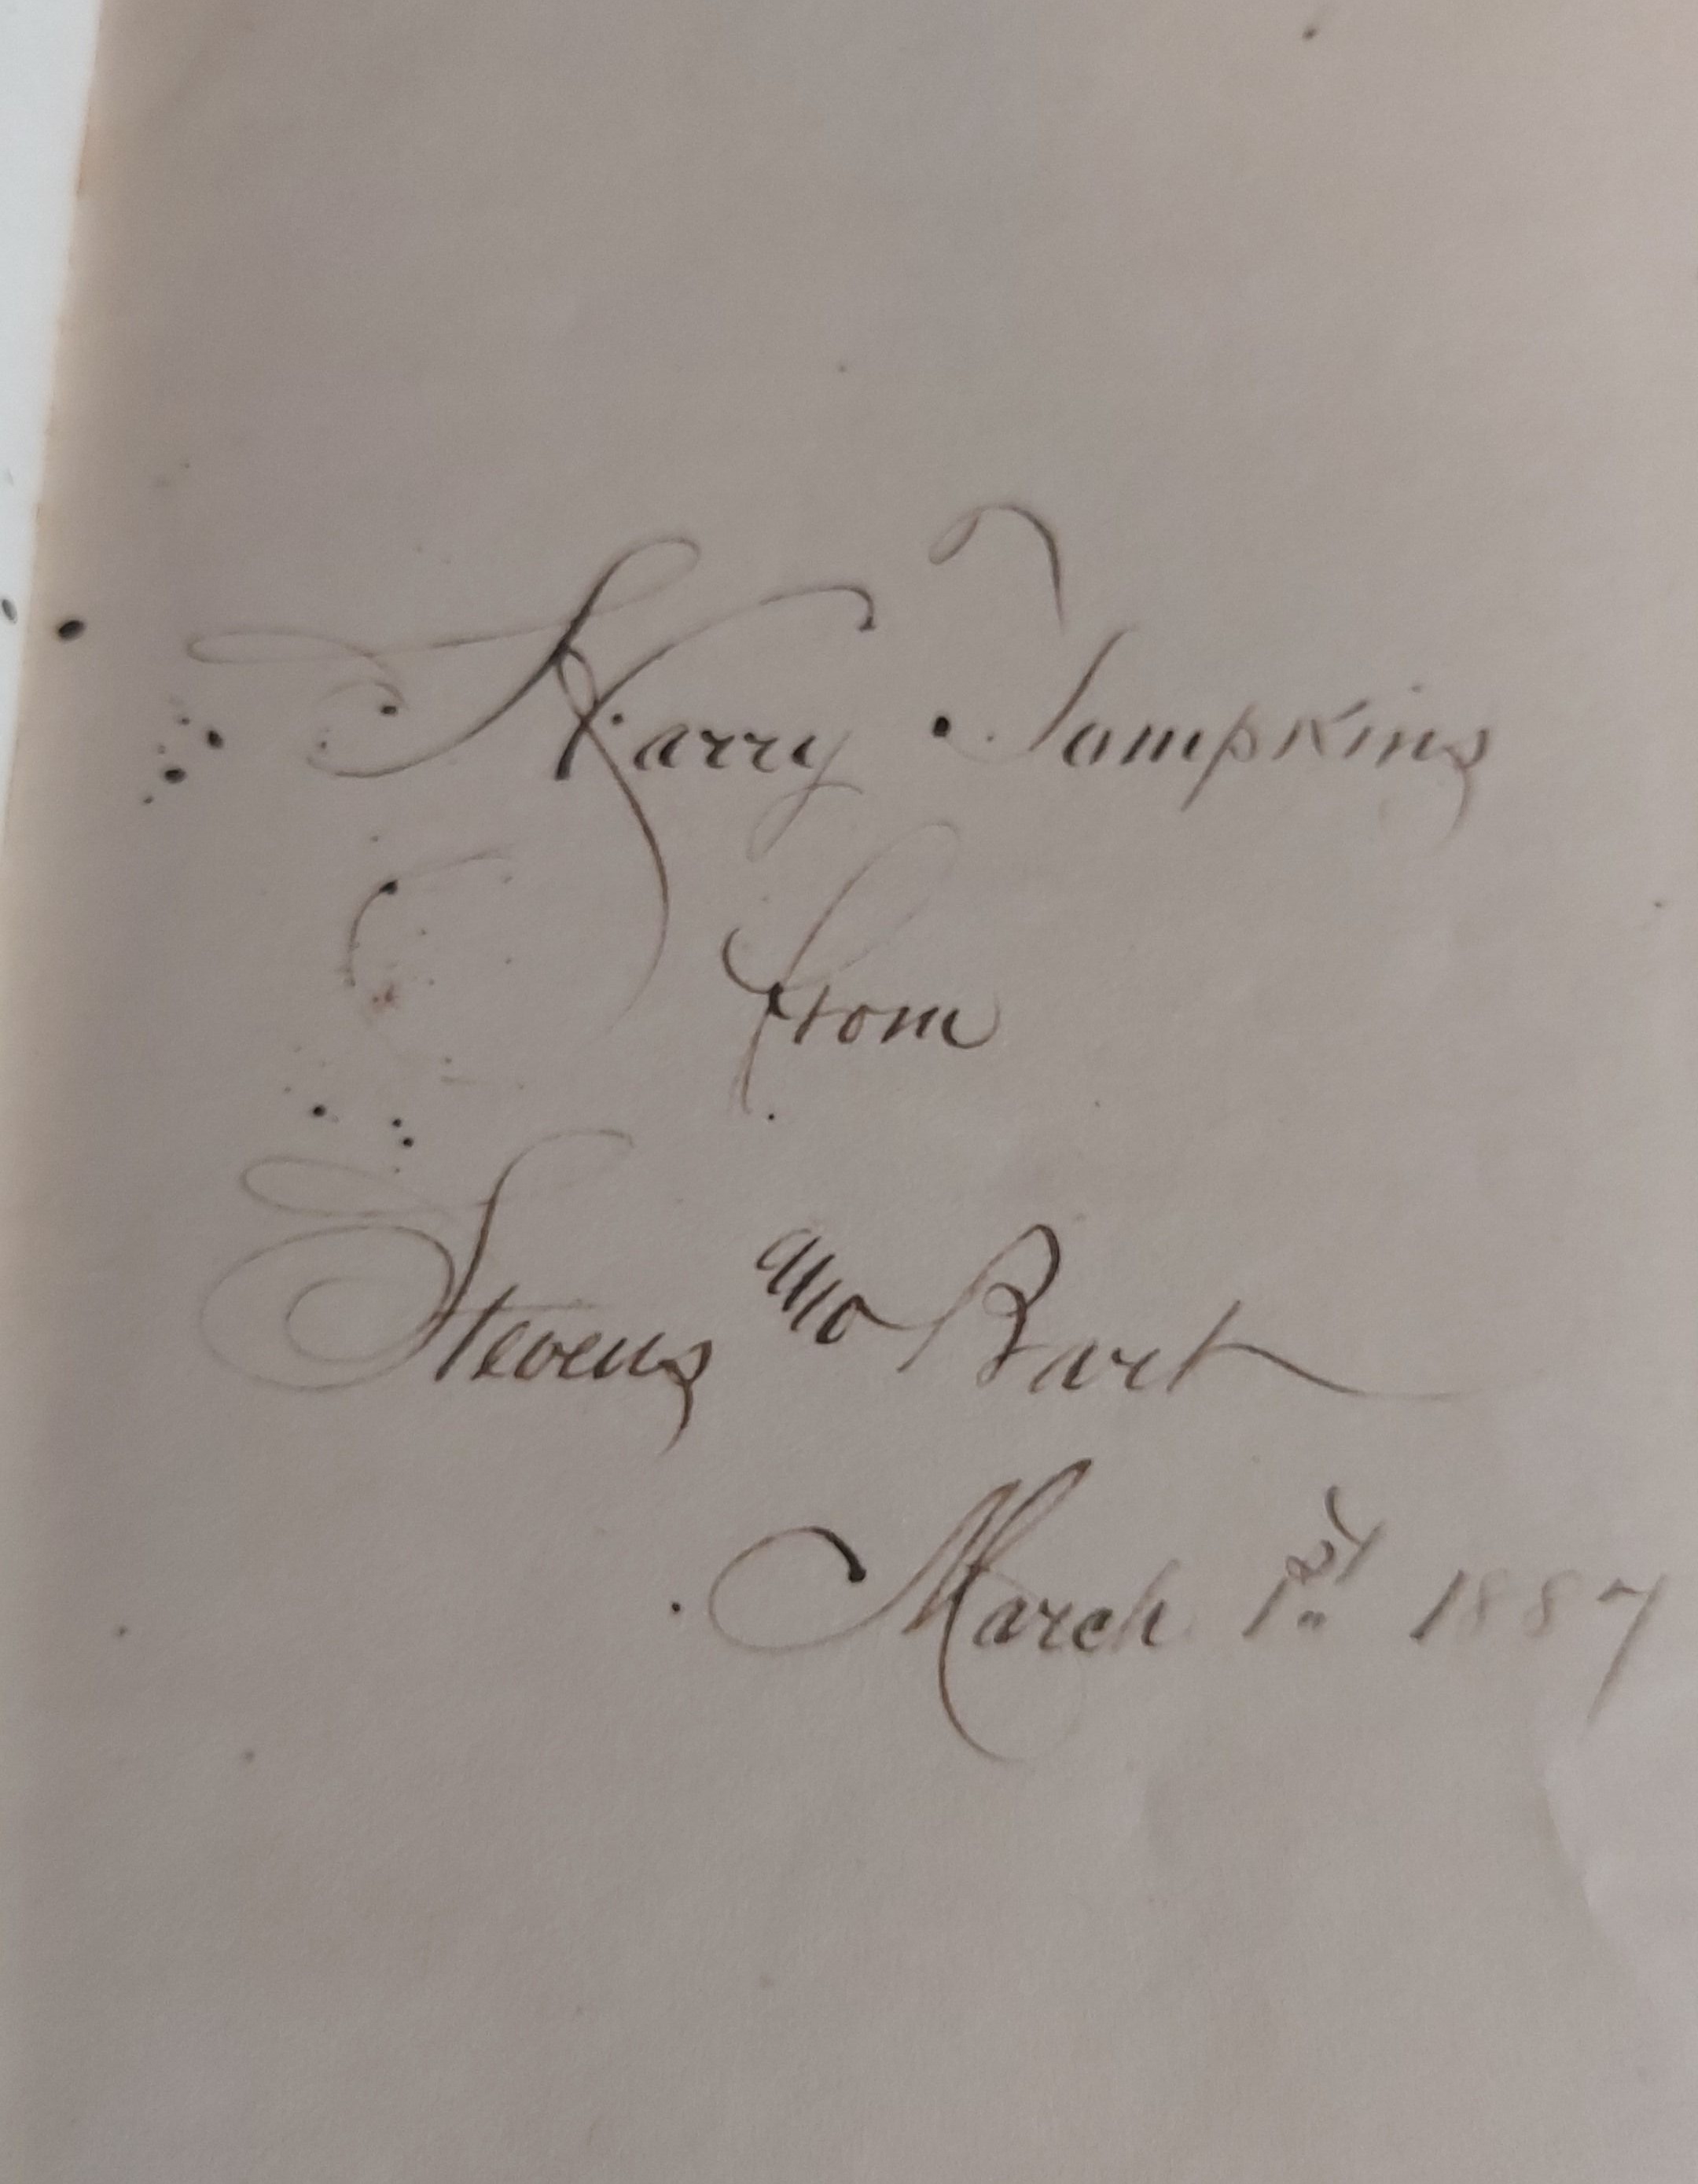 Harry Tompkins
from
Stevens Bart
March 1st 1887